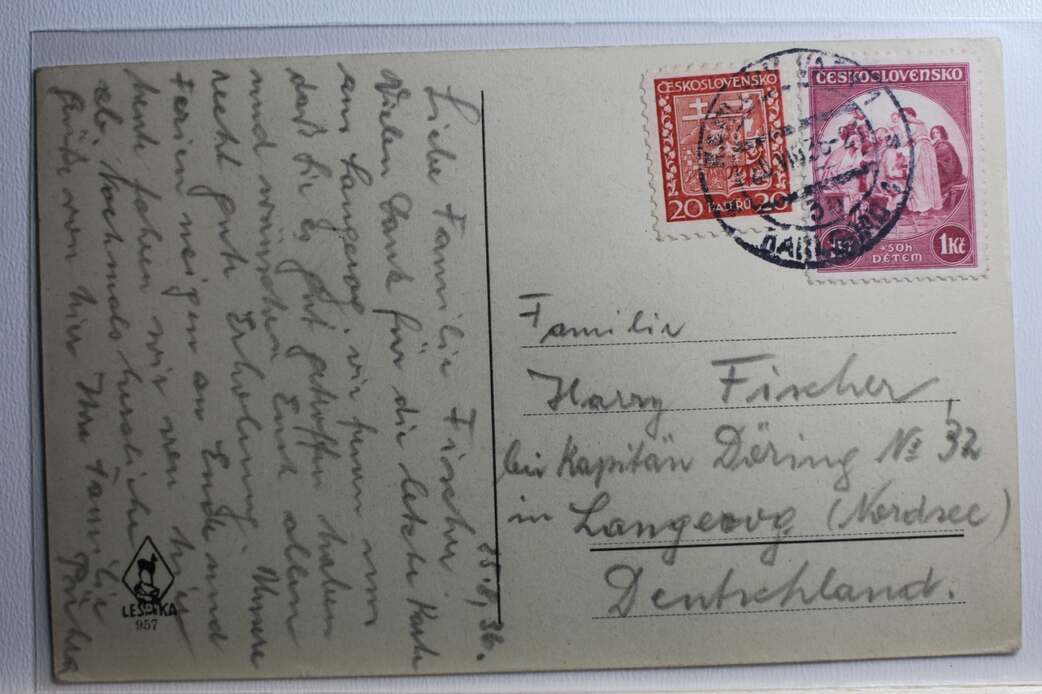 15.8.36.
Liebe Familie Fischer
Vielen Dank für die letzte Karte
aus Langeoog. wir freuen uns
daß Sie Es gut getroffen haben
und wünschen Euch allen
recht gute Erholung. Unsere
Ferien neigen an Ende und
heute fahren wir von hier
ab. Nochmals herzliche
Grüße von hier Ihre Familie
LESTKA
957
ČESKOSLOVENSKO
20 HALÉŘŮ 20
ČESKOSLOVENSKO
+50h 1Kč
DĚTEM
Familie
Harry Fischer,
bei Kapitän Döring № 32
in Langeoog (Nordsee)
Deutschland.